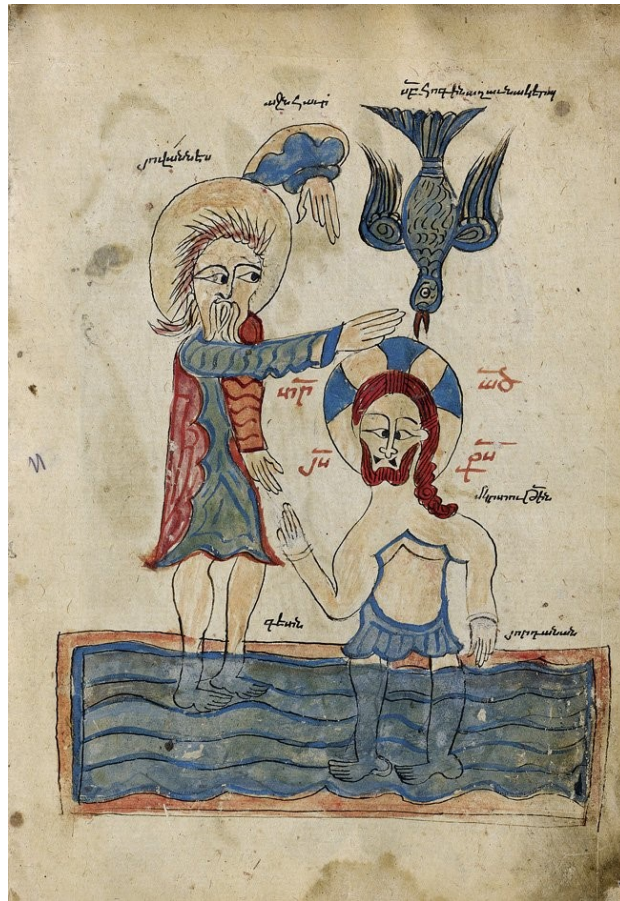 աջն հաւր
սբ հոգին աղաւնակերպ
յովաննես
տր
ած
յս
քս
մկրտութին
գետն
յորդանան